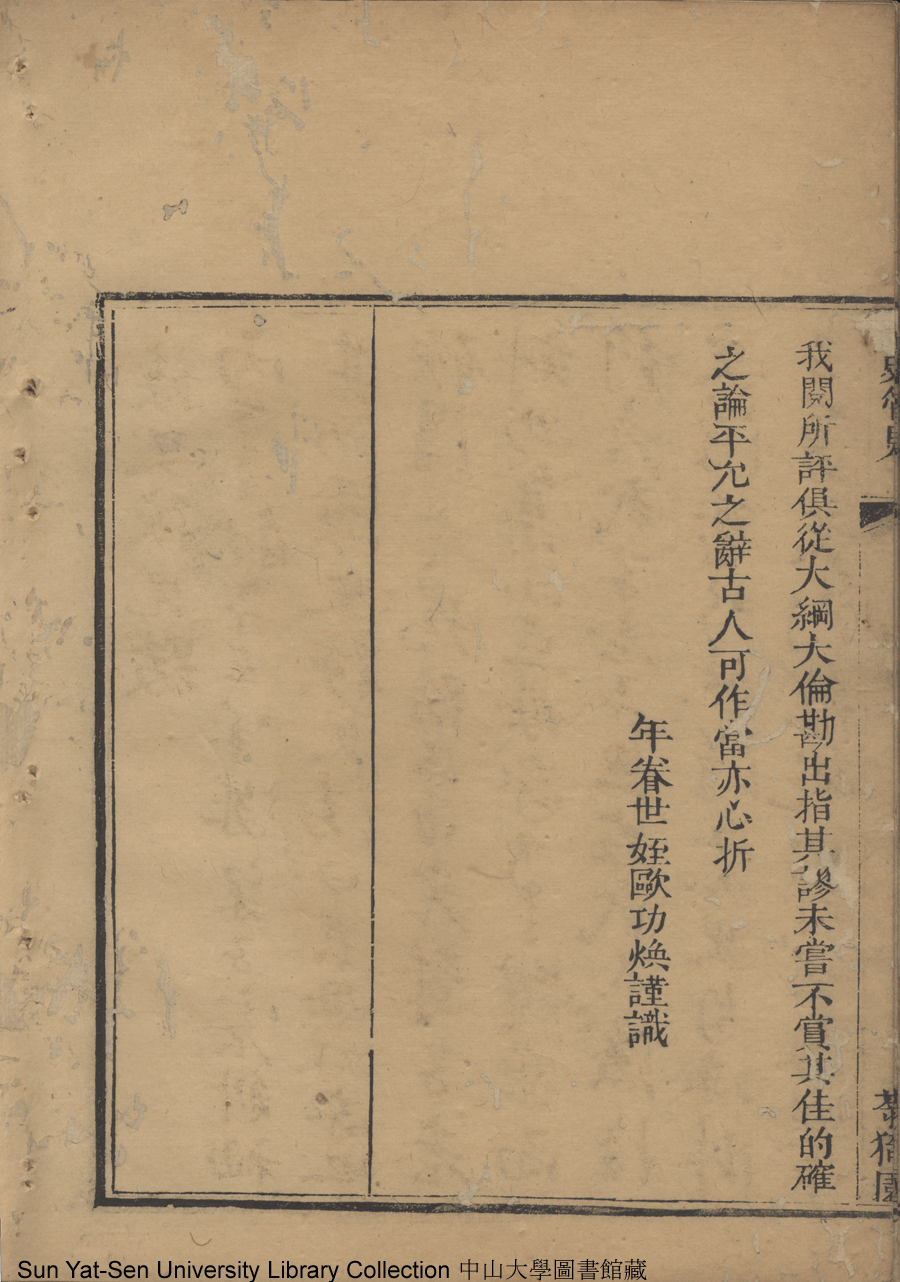 史管見
我閱所評俱從大綱大倫勘出指其謬未嘗不賞其佳的確
之論平允之辭古人可作當亦心折
年眷世姪歐功焕謹識
猗園
Sun Yat-Sen University Library Collection 中山大學圖書館藏